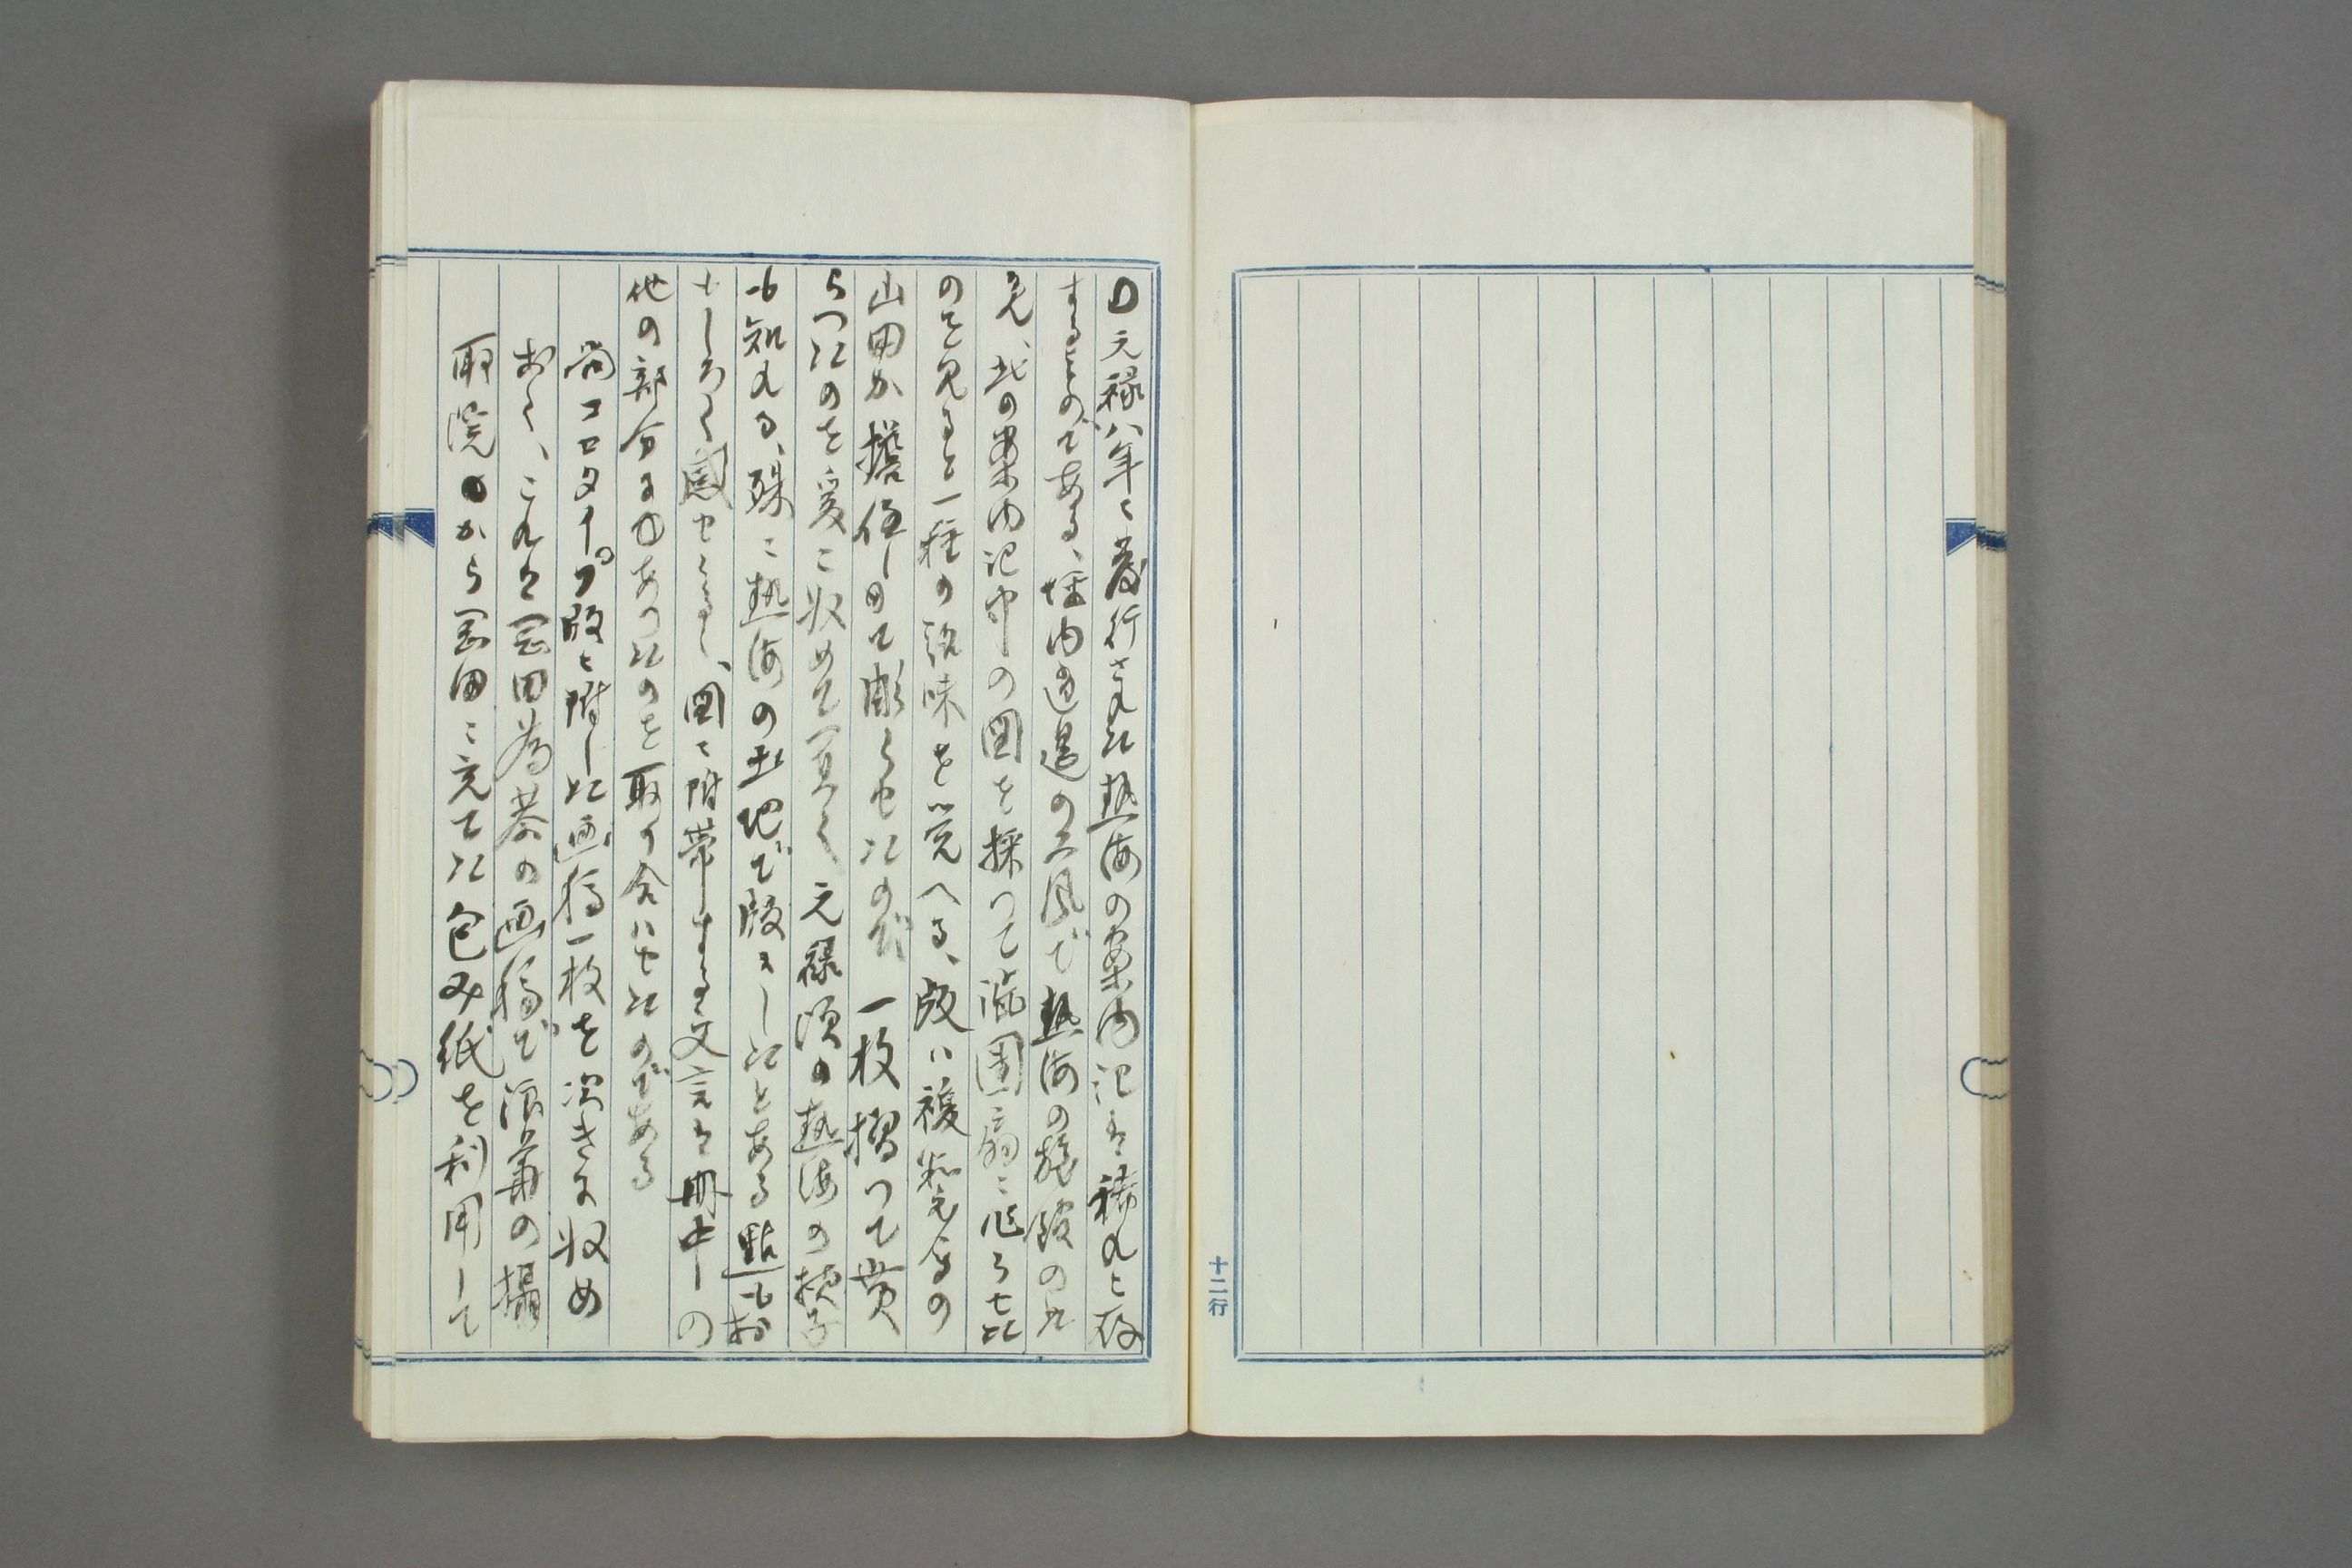 十二行
元禄八年に発行された熱海の案内記は稀れに存
するものである、坪内逍遥の工風で熱海の旅館の
え、此の案内記中の図を採つて澁団扇に作らせた
のを見ると一種の趣味を覚へる、版は複製を
山田が擔任しゐて彫らせたのだ 一枚摺つて貰
らつたのを爰に収めて置く 元禄頃の熱海の様子
も知れる、殊に熱海の土地で版にしたとある點もお
もしろく感ぜらるゝ、図に附帯する文言は冊中の
他の部分にあつたのを取り合はせたのである
尚コロタイプ版に附した画稿一枚を次ぎに収め
おく、これは岡田為恭の画稿で浪華の
取院から岡田に宛てた包み紙を利用して